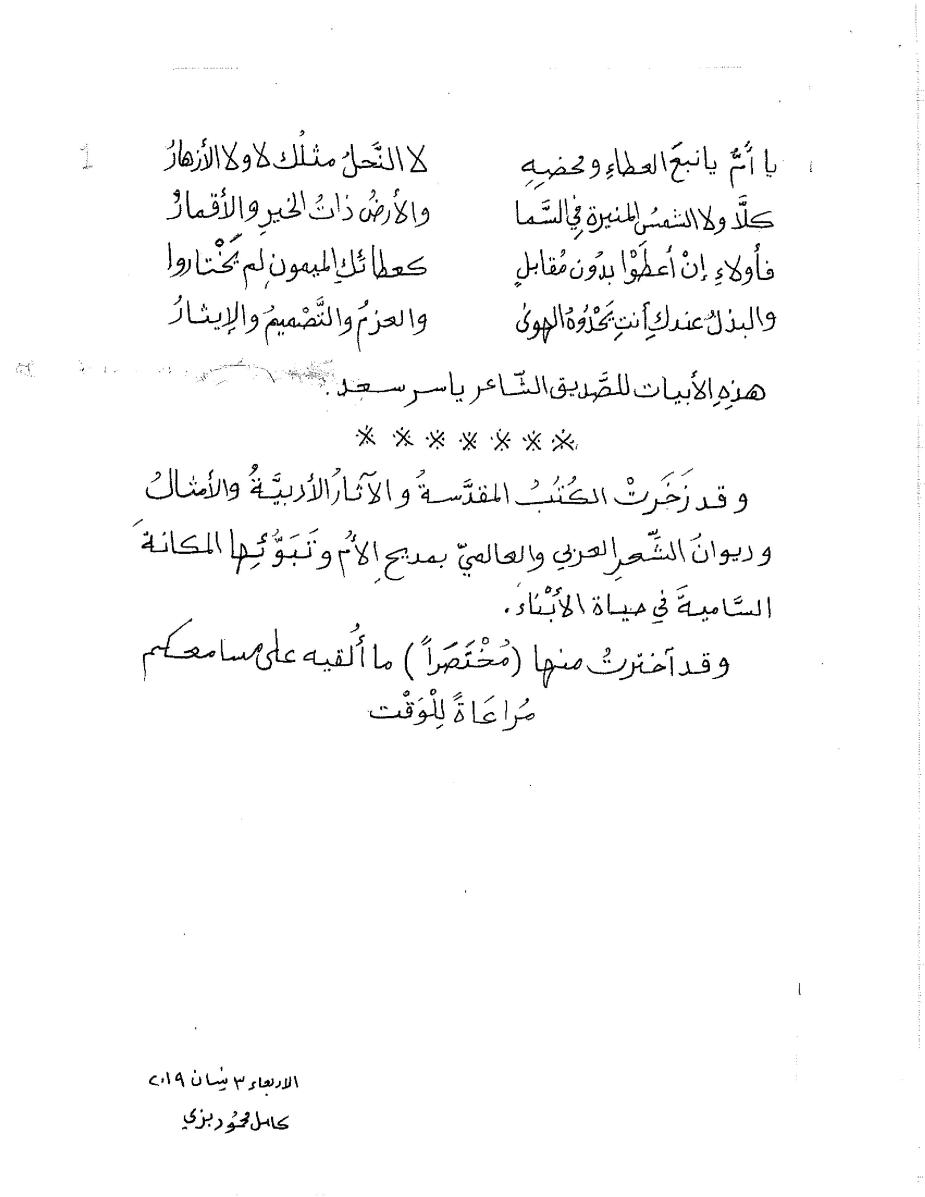 1
يا أمُّ يا نبعَ العطاءِ ومحضِهِ لا النَّحلُ مثلُك لا ولا الأزهارُ
كلَّا ولا الشمسُ المنيرة في السَّما والأرضُ ذاتُ الخيرِ والأقمارُ
فأولاءِ إنْ أعطَوْا بدُون مُقابلٍ كعطائكِ الميمونِ لم يَخْتاروا
والبذلُ عندكِ أنتِ يَحْدُوهُ الهوىٰ والعزمُ والتَّصْميمُ والإيثارُ
هذِهِ الأبيات للصَّديق الشّاعر ياسر سعد.
※ ※ ※ ※ ※ ※ ※
وقد زَخَرتْ الكُتُبُ المقدَّسةُ والآثارُ الأدبيَّةُ والأمثالُ
وديوانُ الشِّعرِ العربي والعالميّ بمديحِ الأمُ وتَبَوُّئِها المكانةَ
السَّاميةَ في حياة الأبْناء.
وقد آخترتُ منها (مُخْتَصَراً) ما أُلقيه على مسامعكم
مُراعَاةً لِلْوَقْت
الاربعاء ٣ نيسان ٢٠١٩
كامل محمود بزي